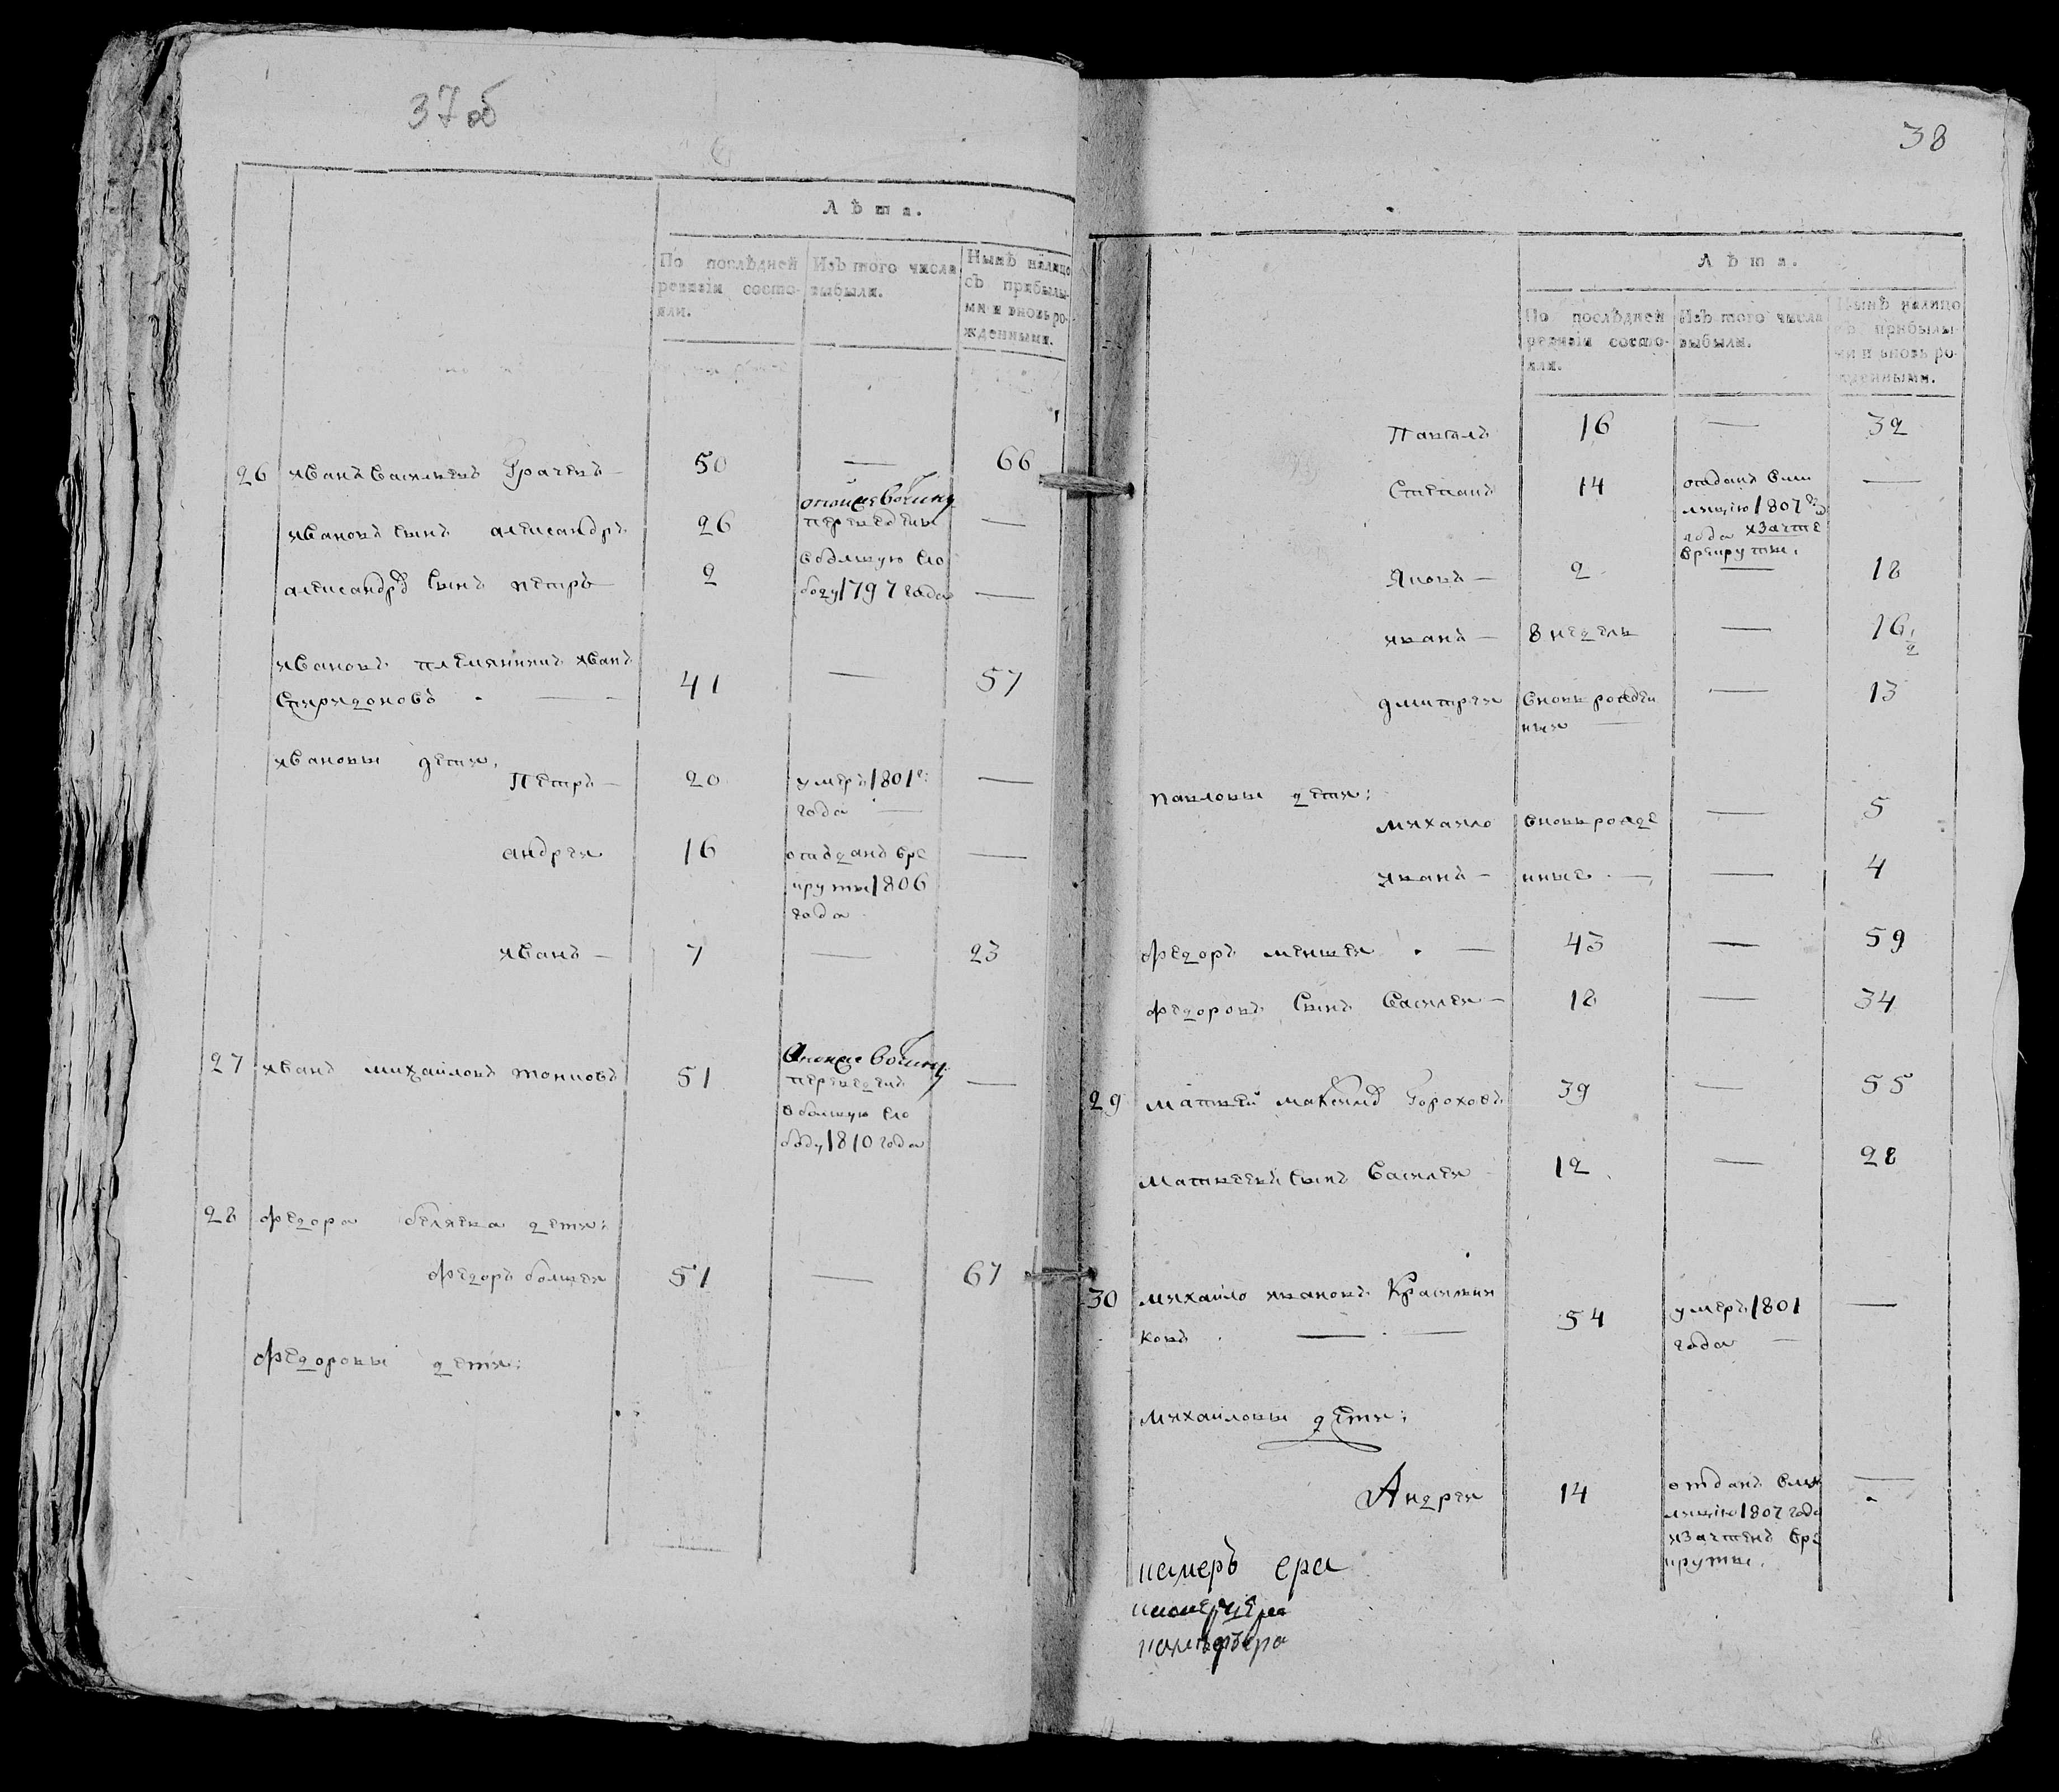 37 об
Лѣта.
По послѣдней ревизіи состояли.
Изъ того числа выбыли.
Нынѣ налицо съ прибылыми и вновь рожденными.
26 иванъ васильевъ Грачевъ — 50 — 66
ивановъ сынъ александръ 26 —
переведены
александръ сынъ петръ 2 —
вольшую сло
боду 1797 года
ивановъ племянникъ иванъ
спиридоновъ 41 — 57
ивановы дети,
Петръ — 20 умеръ 1801г: —
года —
андреи 16 отъданъ вре —
круты 1806
года
иванъ — 7 — 23
27 иванъ михайловъ 51 —
переведенъ
вбольшую сло
боду 1810 года
28 федора беляева дети:
федоръ болшеи 51 — 67
федоровы дети:
38
Лѣта.
По послѣдней ревизіи состояли.
Изъ того числа выбыли.
Нынѣ налицо съ прибылыми и вновь рожденными.
Павелъ 16 — 32
Степанъ 14 отданъ вми —
лицію 1807го
года изачте
врекруты.
Яковъ — 2 — 18
иванъ — 8 недель — 16 1/2
дмитреи вновь рожден — 13
ныи —
павловы дети:
михаило вновь рожде — 5
иванъ — нные — — 4
федоръ меншеи — 43 — 59
федоровъ сынъ василеи — 18 — 34
29 матвей Гороховъ 39 — 55
матвеевъ сынъ василеи 12 — 28
30 михайло ивановъ Красильни
ковъ — — 54 умеръ 1801 —
года —
михайловы дети:
Андреи 14 отданъ вми —
лицію 1807 года
изачтенъ вре
круты.